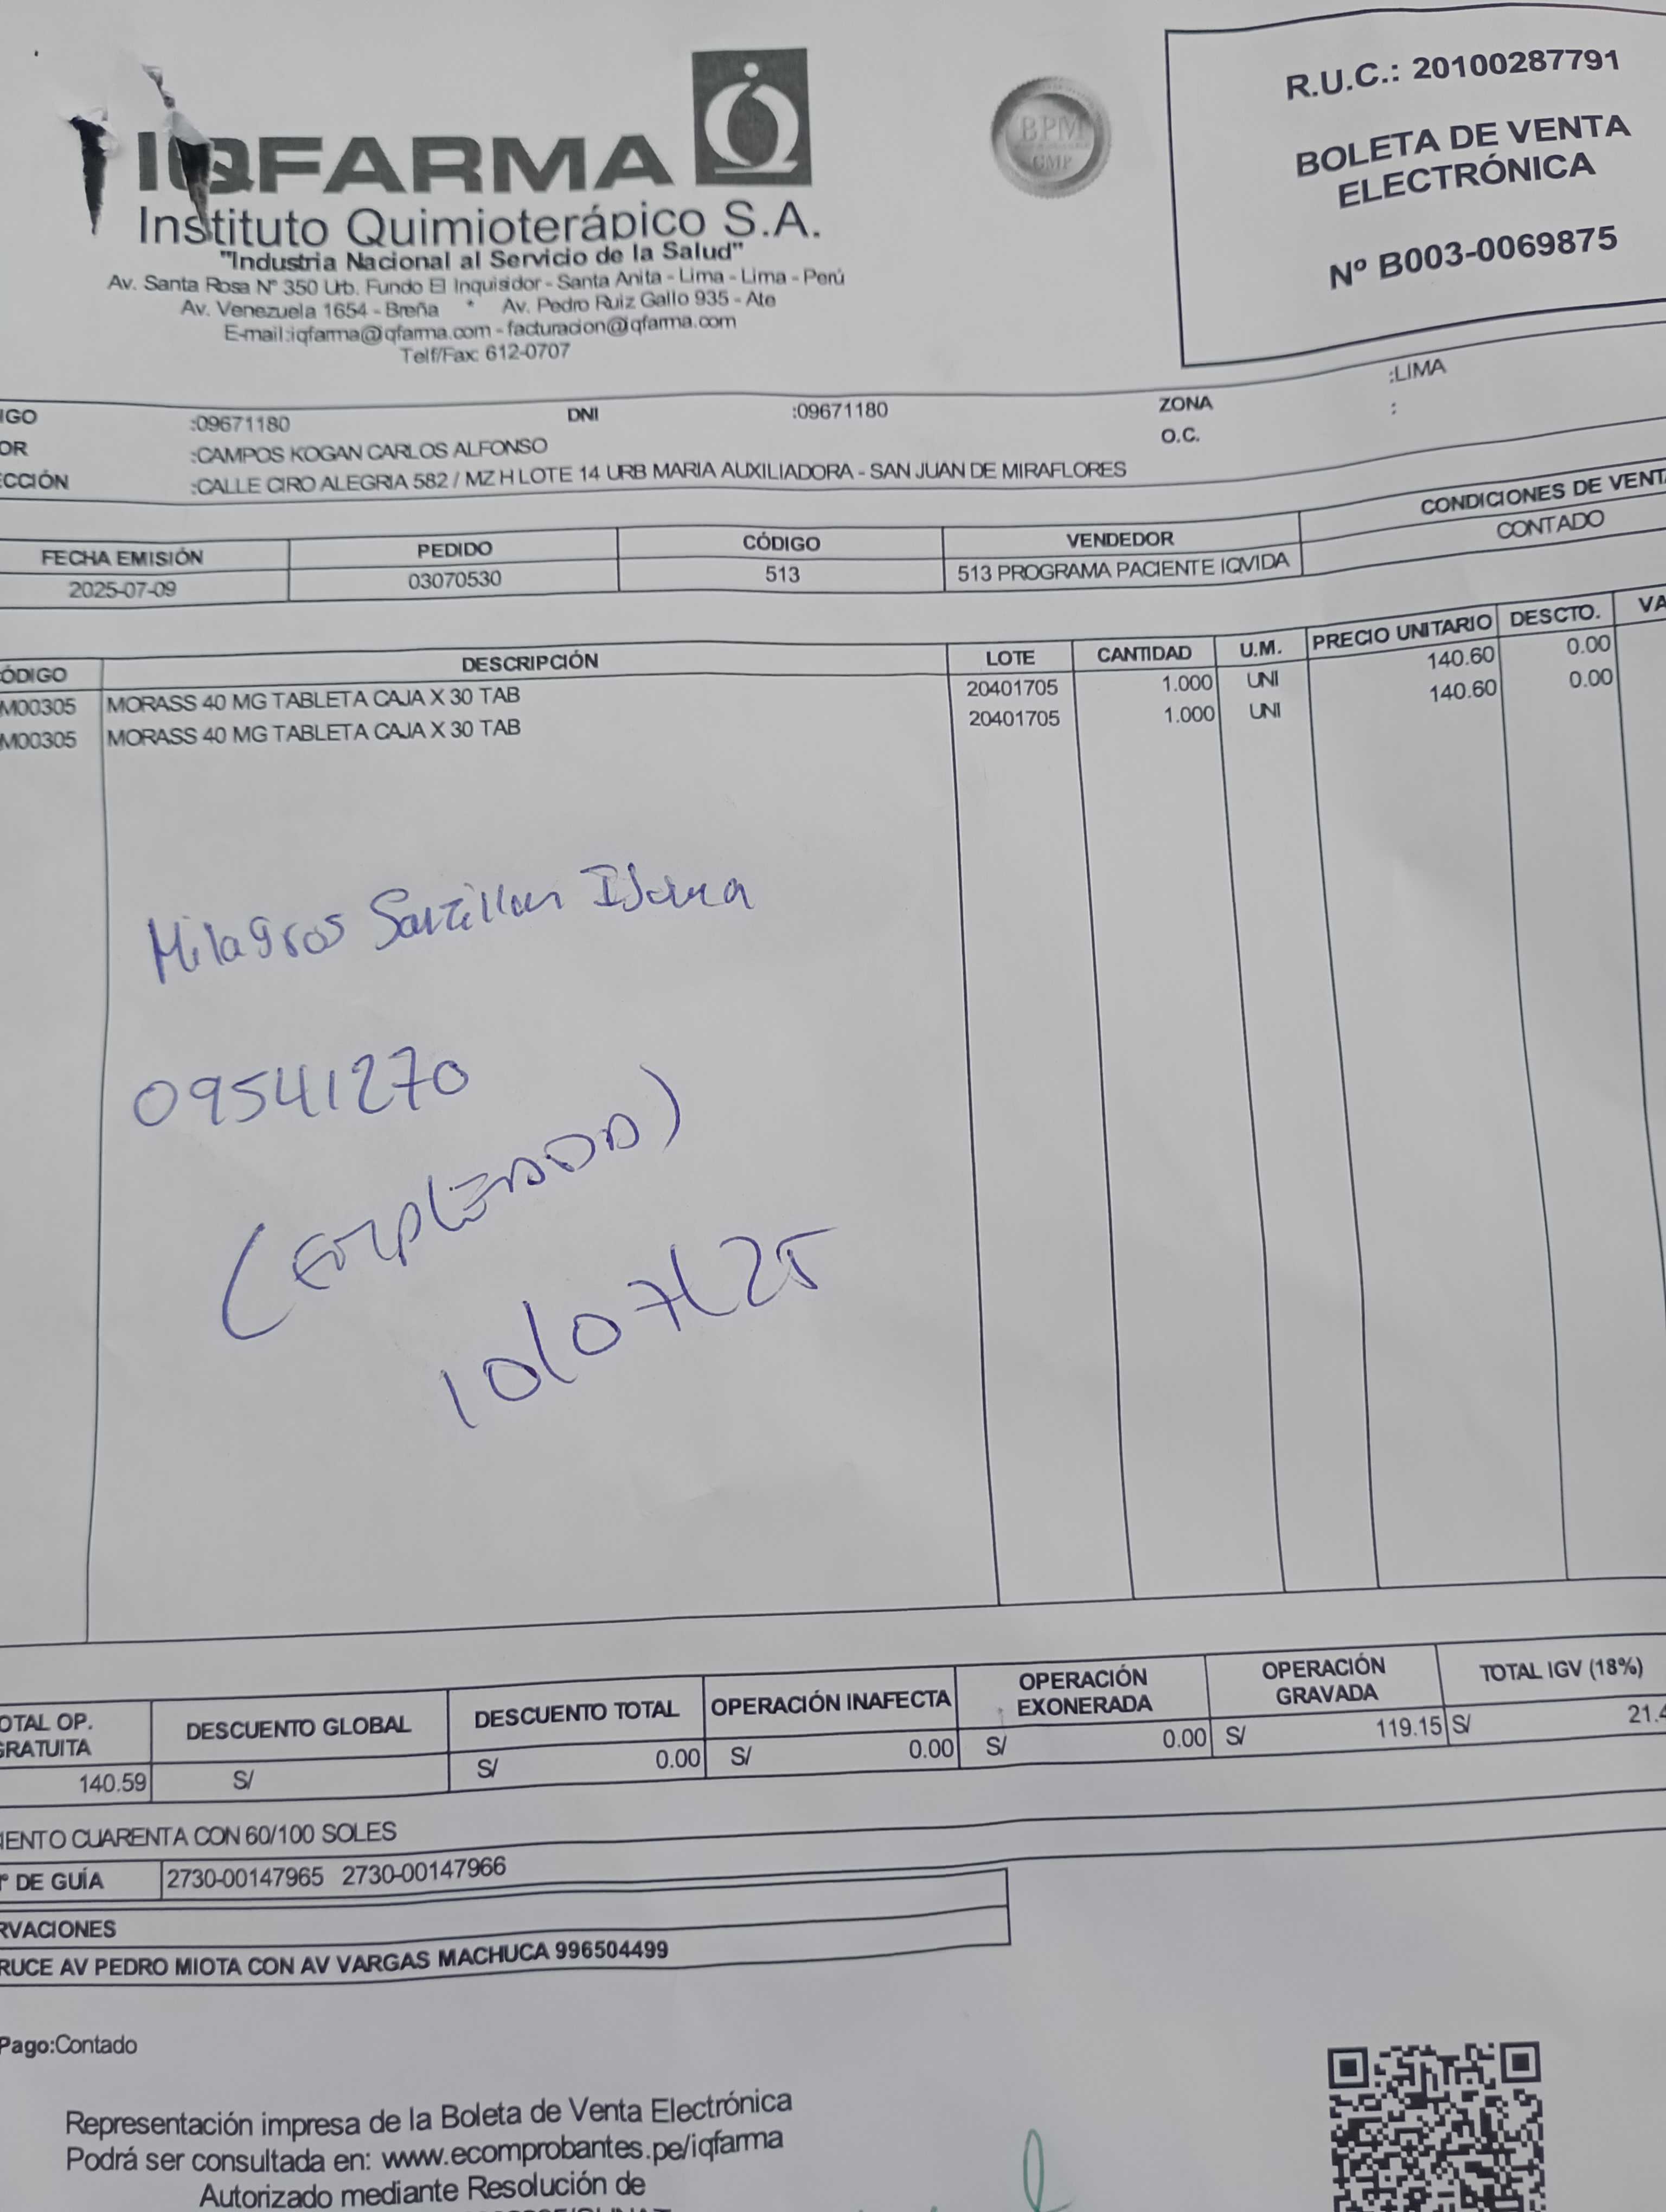 IQFARMA
Instituto Quimioterápico S.A.
"Industria Nacional al Servicio de la Salud"
Av. Santa Rosa Nº 350 Urb. Fundo El Inquisidor - Santa Anita - Lima - Lima - Perú
Av. Venezuela 1654 - Breña * Av. Pedro Ruiz Gallo 935 - Ate
E-mail:iqfarma@iqfarma.com - facturacion@iqfarma.com
Telf/Fax: 612-0707
BPM
GMP
R.U.C.: 20100287791
BOLETA DE VENTA
ELECTRÓNICA
Nº B003-0069875
IGO :09671180 DNI :09671180 ZONA :LIMA
OR :CAMPOS KOGAN CARLOS ALFONSO O.C. :
ECCIÓN :CALLE CIRO ALEGRIA 582 / MZ H LOTE 14 URB MARIA AUXILIADORA - SAN JUAN DE MIRAFLORES
FECHA EMISIÓN PEDIDO CÓDIGO VENDEDOR CONDICIONES DE VENT
2025-07-09 03070530 513 513 PROGRAMA PACIENTE IQVIDA CONTADO
ÓDIGO DESCRIPCIÓN LOTE CANTIDAD U.M. PRECIO UNITARIO DESCTO. VA
M00305 MORASS 40 MG TABLETA CAJA X 30 TAB 20401705 1.000 UNI 140.60 0.00
M00305 MORASS 40 MG TABLETA CAJA X 30 TAB 20401705 1.000 UNI 140.60 0.00
Milagros
09541270
10/07/25
OTAL OP. GRATUITA DESCUENTO GLOBAL DESCUENTO TOTAL OPERACIÓN INAFECTA OPERACIÓN EXONERADA OPERACIÓN GRAVADA TOTAL IGV (18%)
140.59 S/ S/ 0.00 S/ 0.00 S/ 0.00 S/ 119.15 S/ 21.4
IENTO CUARENTA CON 60/100 SOLES
º DE GUÍA 2730-00147965 2730-00147966
RVACIONES
RUCE AV PEDRO MIOTA CON AV VARGAS MACHUCA 996504499
Pago:Contado
Representación impresa de la Boleta de Venta Electrónica
Podrá ser consultada en: www.ecomprobantes.pe/iqfarma
Autorizado mediante Resolución de